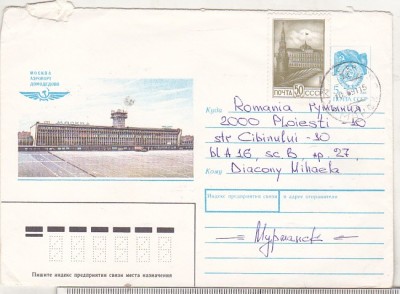 МОСКВА
АЭРОПОРТ
ДОМОДЕДОВО
50
ПОЧТА СССР
ПОЧТА СССР
Куда Romania Румыния.
2000 Ploiesti - 10
str Cibinului - 10
bl A 16, sc. B, ap 27,
Кому Diacony Mihaela
Индекс предприятия связи и адрес отправителя
Мурманск
Пишите индекс предприятия связи места назначения